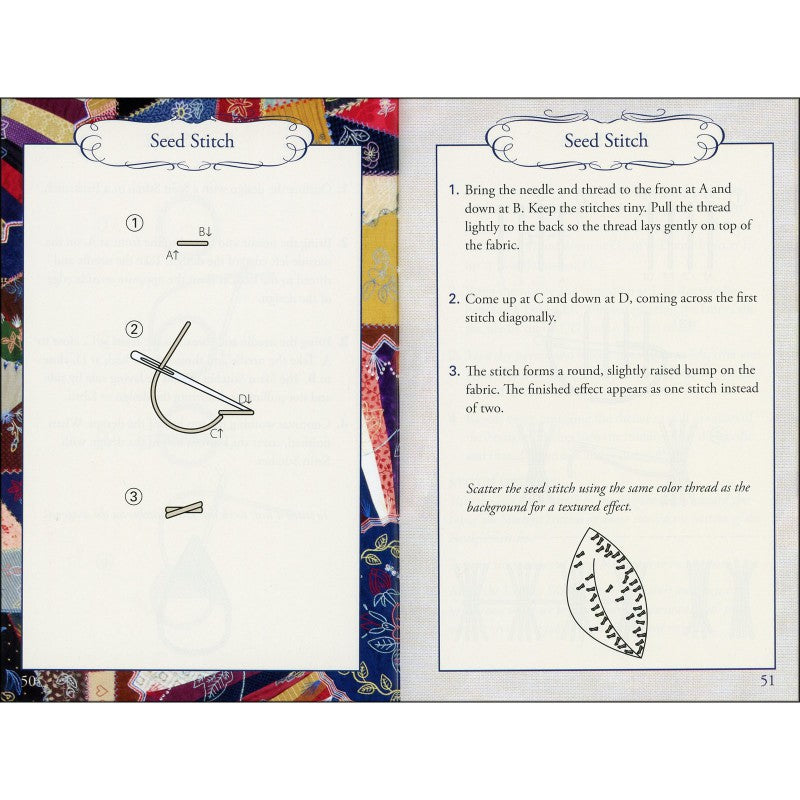 Seed Stitch
1
B↓
A↑
2
D↓
C↑
3
50
Seed Stitch
1. Bring the needle and thread to the front at A and
down at B. Keep the stitches tiny. Pull the thread
lightly to the back so the thread lays gently on top of
the fabric.
2. Come up at C and down at D, coming across the first
stitch diagonally.
3. The stitch forms a round, slightly raised bump on the
fabric. The finished effect appears as one stitch instead
of two.
Scatter the seed stitch using the same color thread as the
background for a textured effect.
51